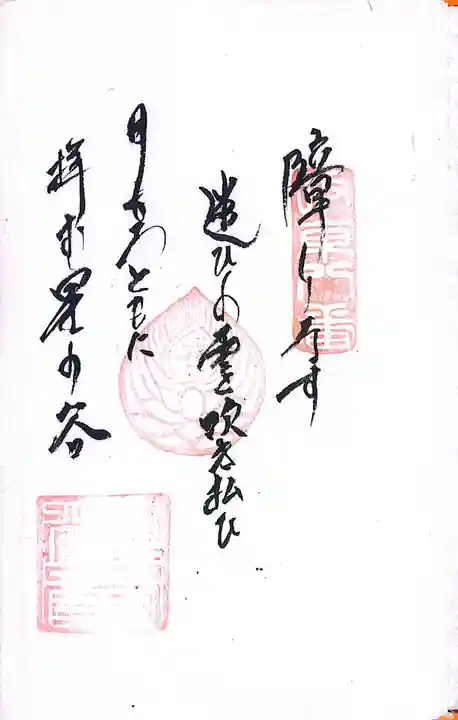 障りなす
迷ひの雲吹き払ひ
月もろともに
拝む星の谷